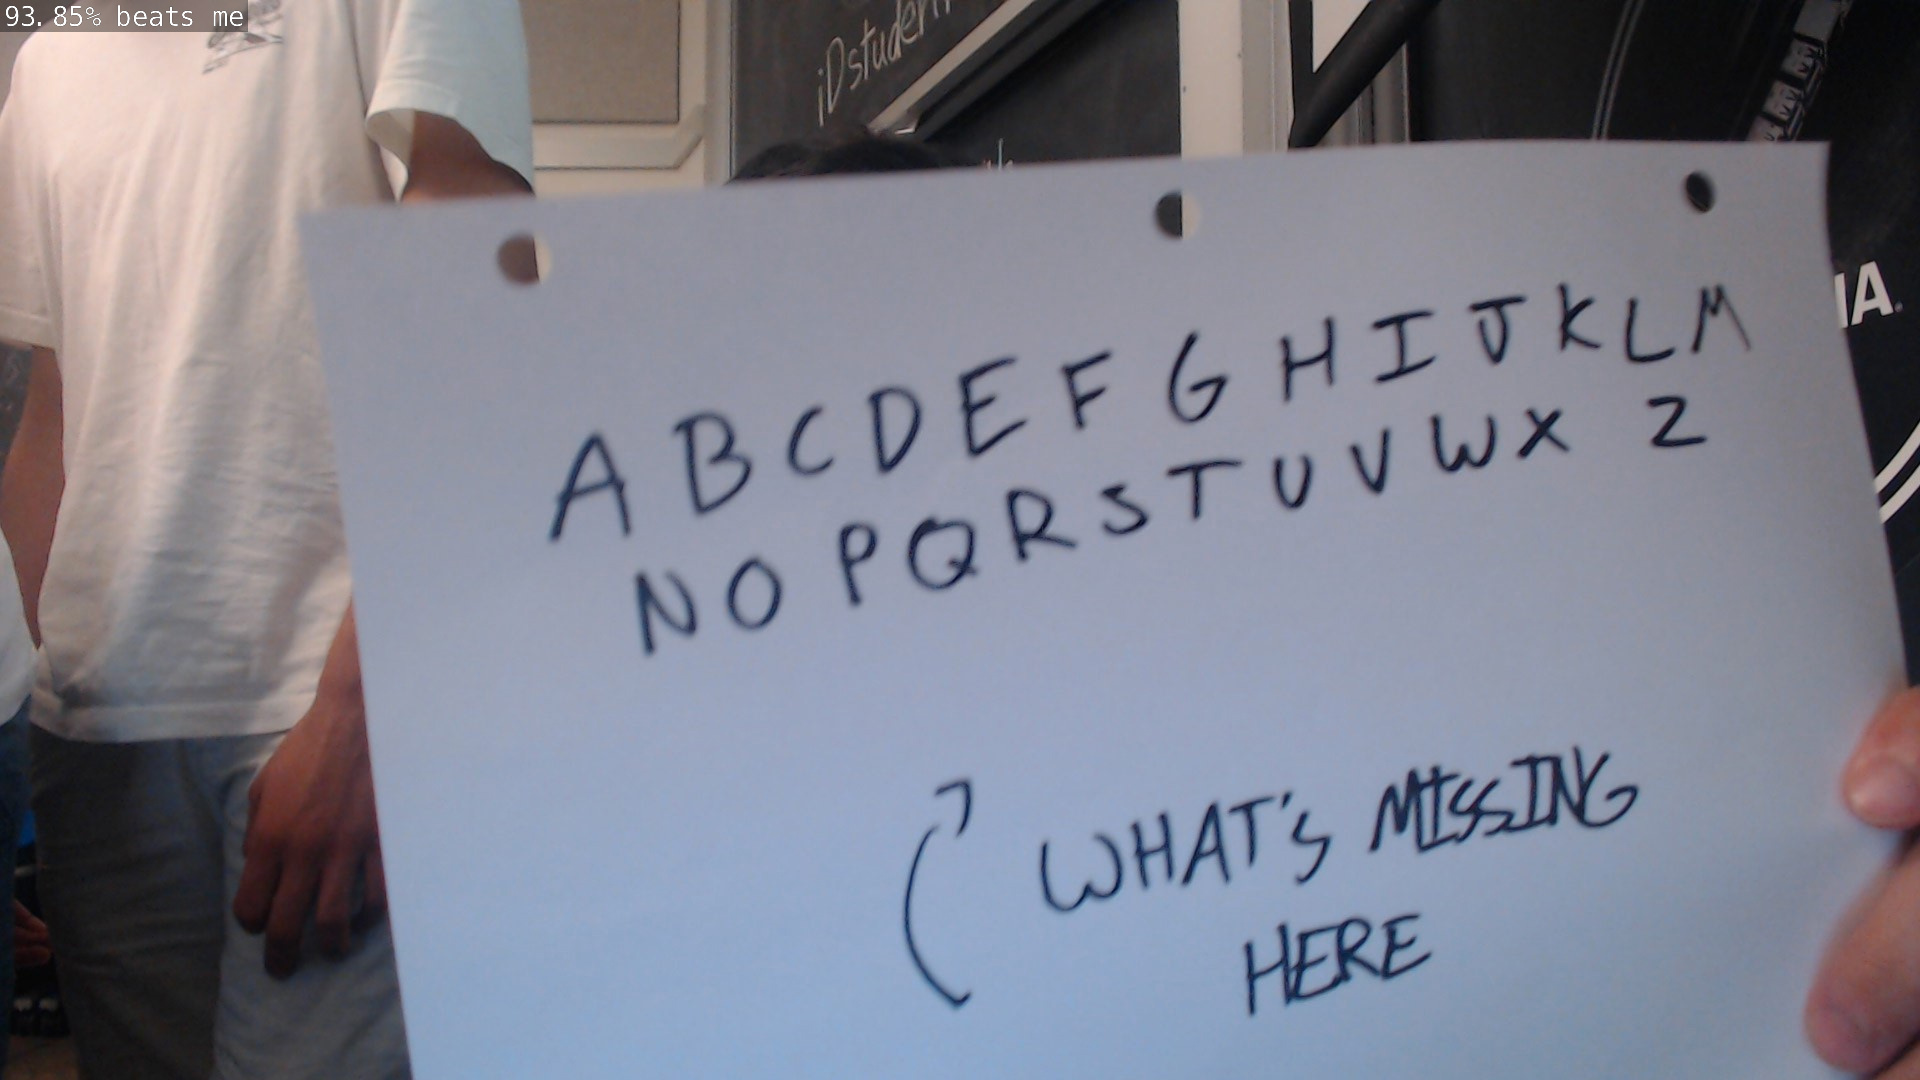 93.85% beats me
iDstuden
IA.
A B C D E F G H I J K L M
N O P Q R S T U V W X Z
WHAT'S MISSING
HERE